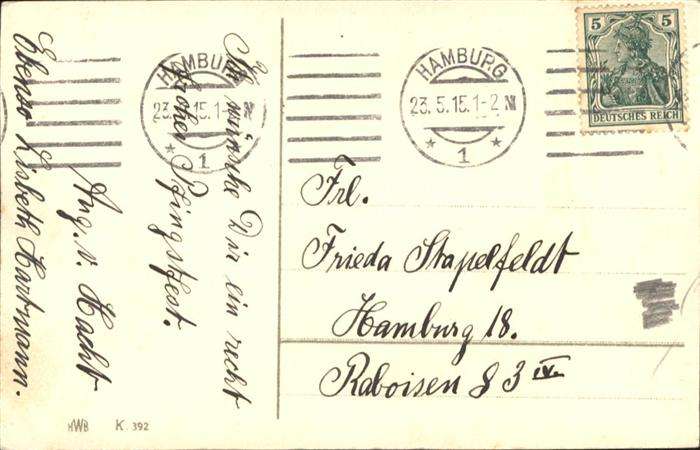 Ich wünsche Dir ein recht
frohes Pfingstfest.
Aug. v. Hacht
Ebenso Lisbeth Hartmann.
HAMBURG
23. 5. 15. 1-2 N
* 1 *
HAMBURG
23. 15. 1- N
* 1
5 5
DEUTSCHES REICH
Frl.
Frieda Stapelfeldt
Hamburg 18.
Raboisen 83 IV.
HWB K. 392